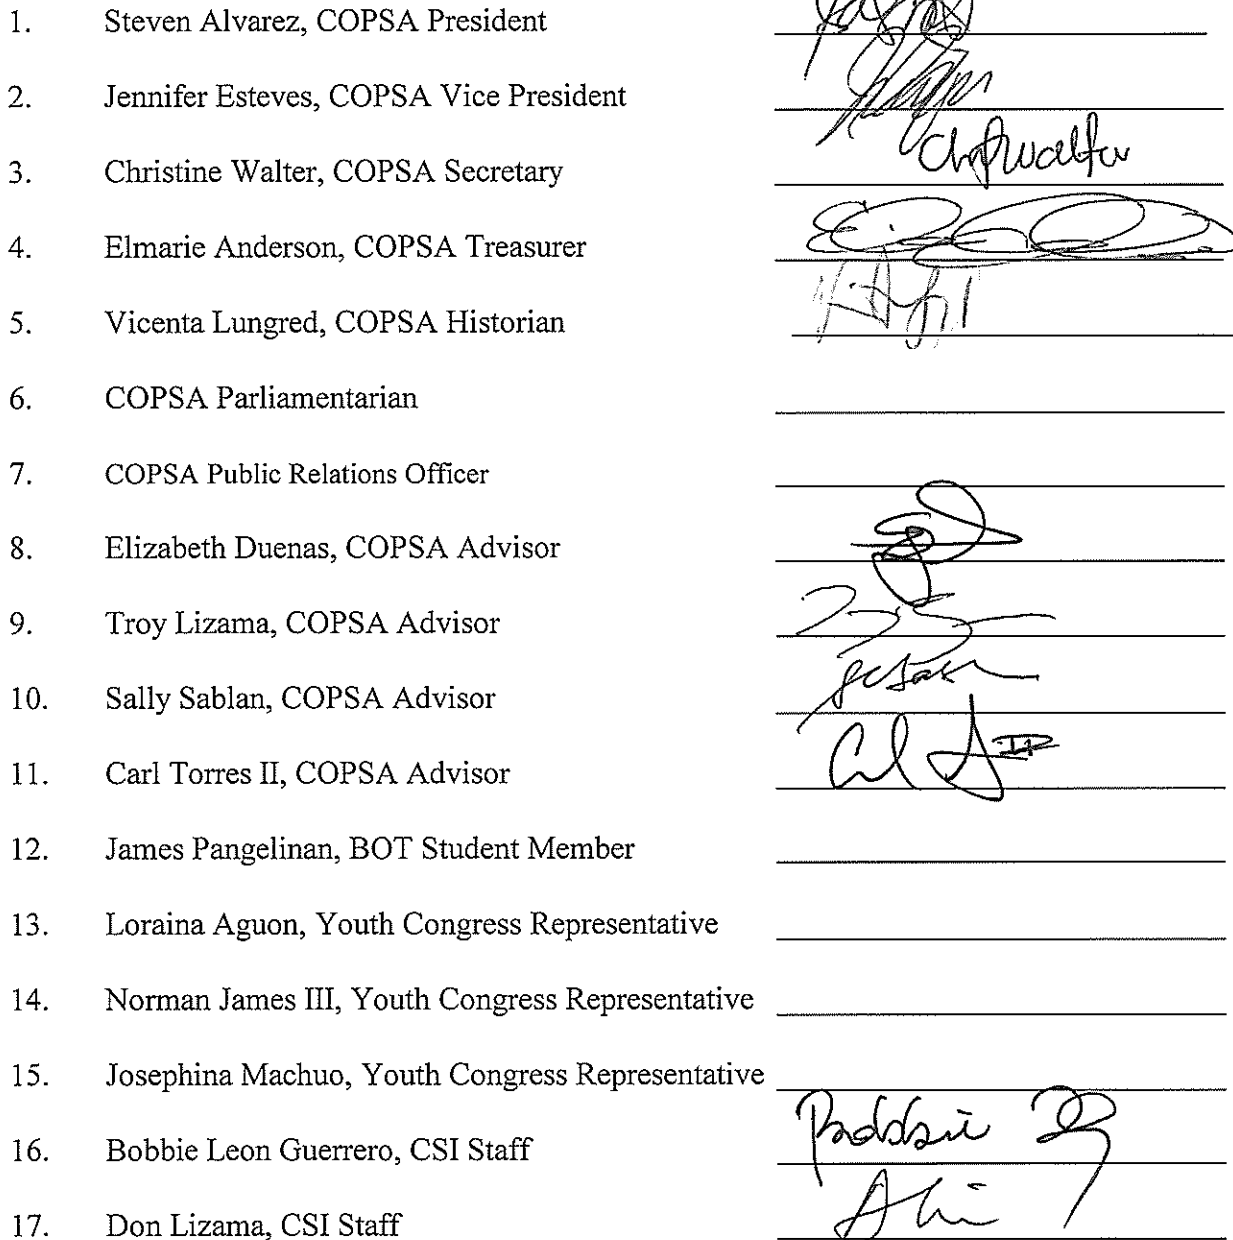 1. Steven Alvarez, COPSA President
2. Jennifer Esteves, COPSA Vice President
3. Christine Walter, COPSA Secretary
4. Elmarie Anderson, COPSA Treasurer
5. Vicenta Lungred, COPSA Historian
6. COPSA Parliamentarian
7. COPSA Public Relations Officer
8. Elizabeth Duenas, COPSA Advisor
9. Troy Lizama, COPSA Advisor
10. Sally Sablan, COPSA Advisor
11. Carl Torres II, COPSA Advisor
12. James Pangelinan, BOT Student Member
13. Loraina Aguon, Youth Congress Representative
14. Norman James III, Youth Congress Representative
15. Josephina Machuo, Youth Congress Representative
16. Bobbie Leon Guerrero, CSI Staff
17. Don Lizama, CSI Staff